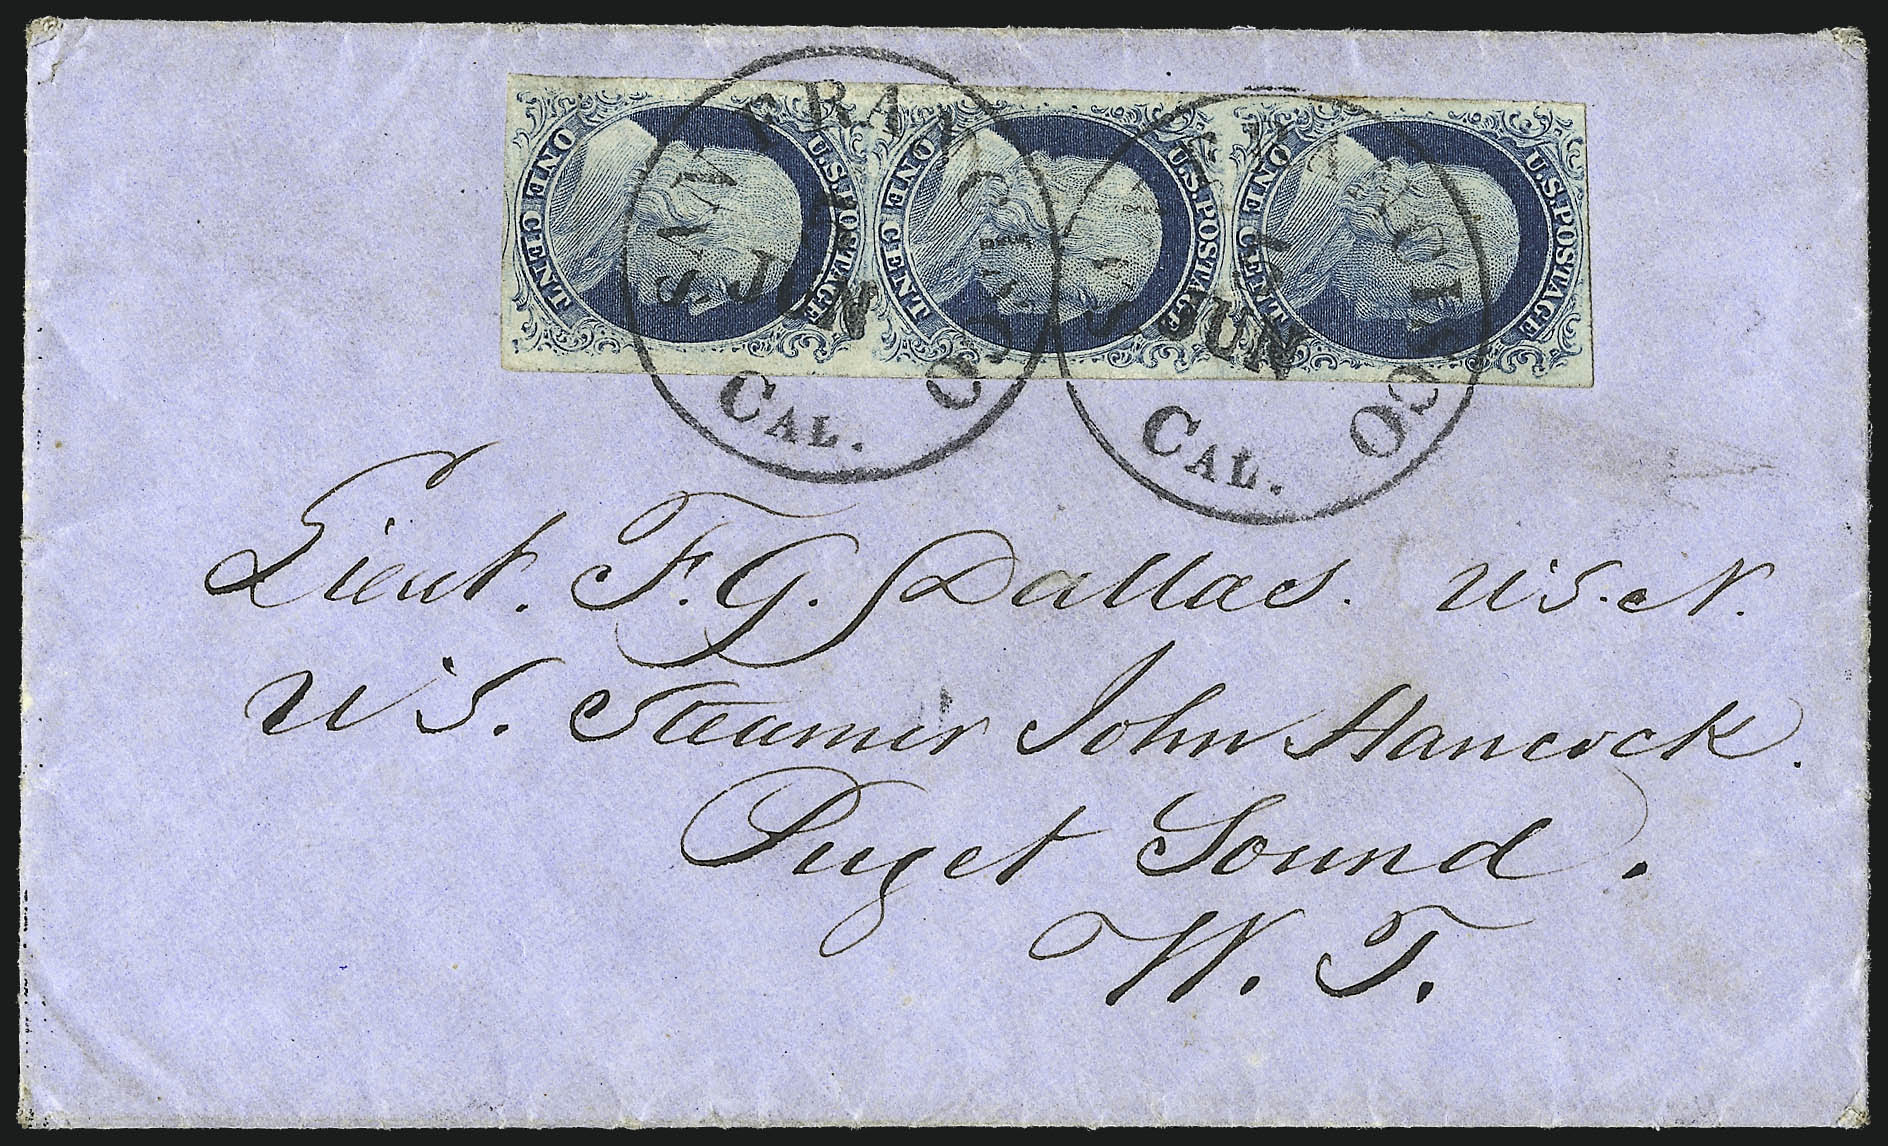 U.S. POSTAGE
ONE CENT
U.S. POSTAGE
ONE CENT
U.S. POSTAGE
ONE CENT
SAN FRANCISCO
JUN
CAL.
SAN FRANCISCO
JUN
CAL.
Lieut. F. G. Dallas. U.S.N.
U.S. Steamer John Hancock.
Puget Sound.
W. T.